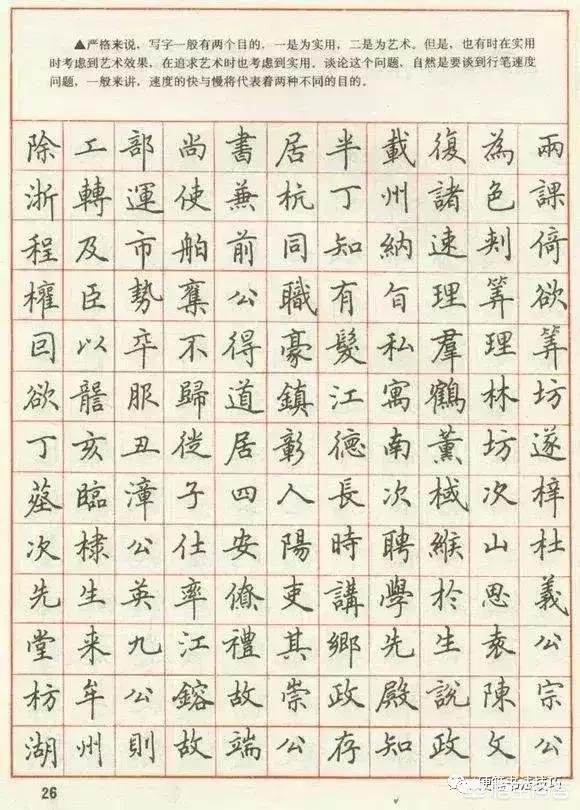 ▲严格来说，写字一般有两个目的，一是为实用，二是为艺术。但是，也有时在实用
时考虑到艺术效果，在追求艺术时也考虑到实用。谈论这个问题，自然是要谈到行笔速度
问题，一般来讲，速度的快与慢将代表着两种不同的目的。
除工部尚書居半載復為兩
浙轉運使兼杭丁州諸色課
程及市舶前同知納速剌倚
權臣勢棄公職有旨理筭欲
回以卒不得豪髮私羣理筭
欲服歸道鎮江寓鶴林坊
丁亥丑徙居彰德南薰坊遂
葬臨漳子四人長次棫次梓
次棣公仕安陽時聘緱山杜
先生英率僚吏講學於思義
堂来九江禮其鄉先生袁公
枋牟公鎔故崇政殿說陳宗
湖州則故端公存知政文公
26
硬笔书法技巧